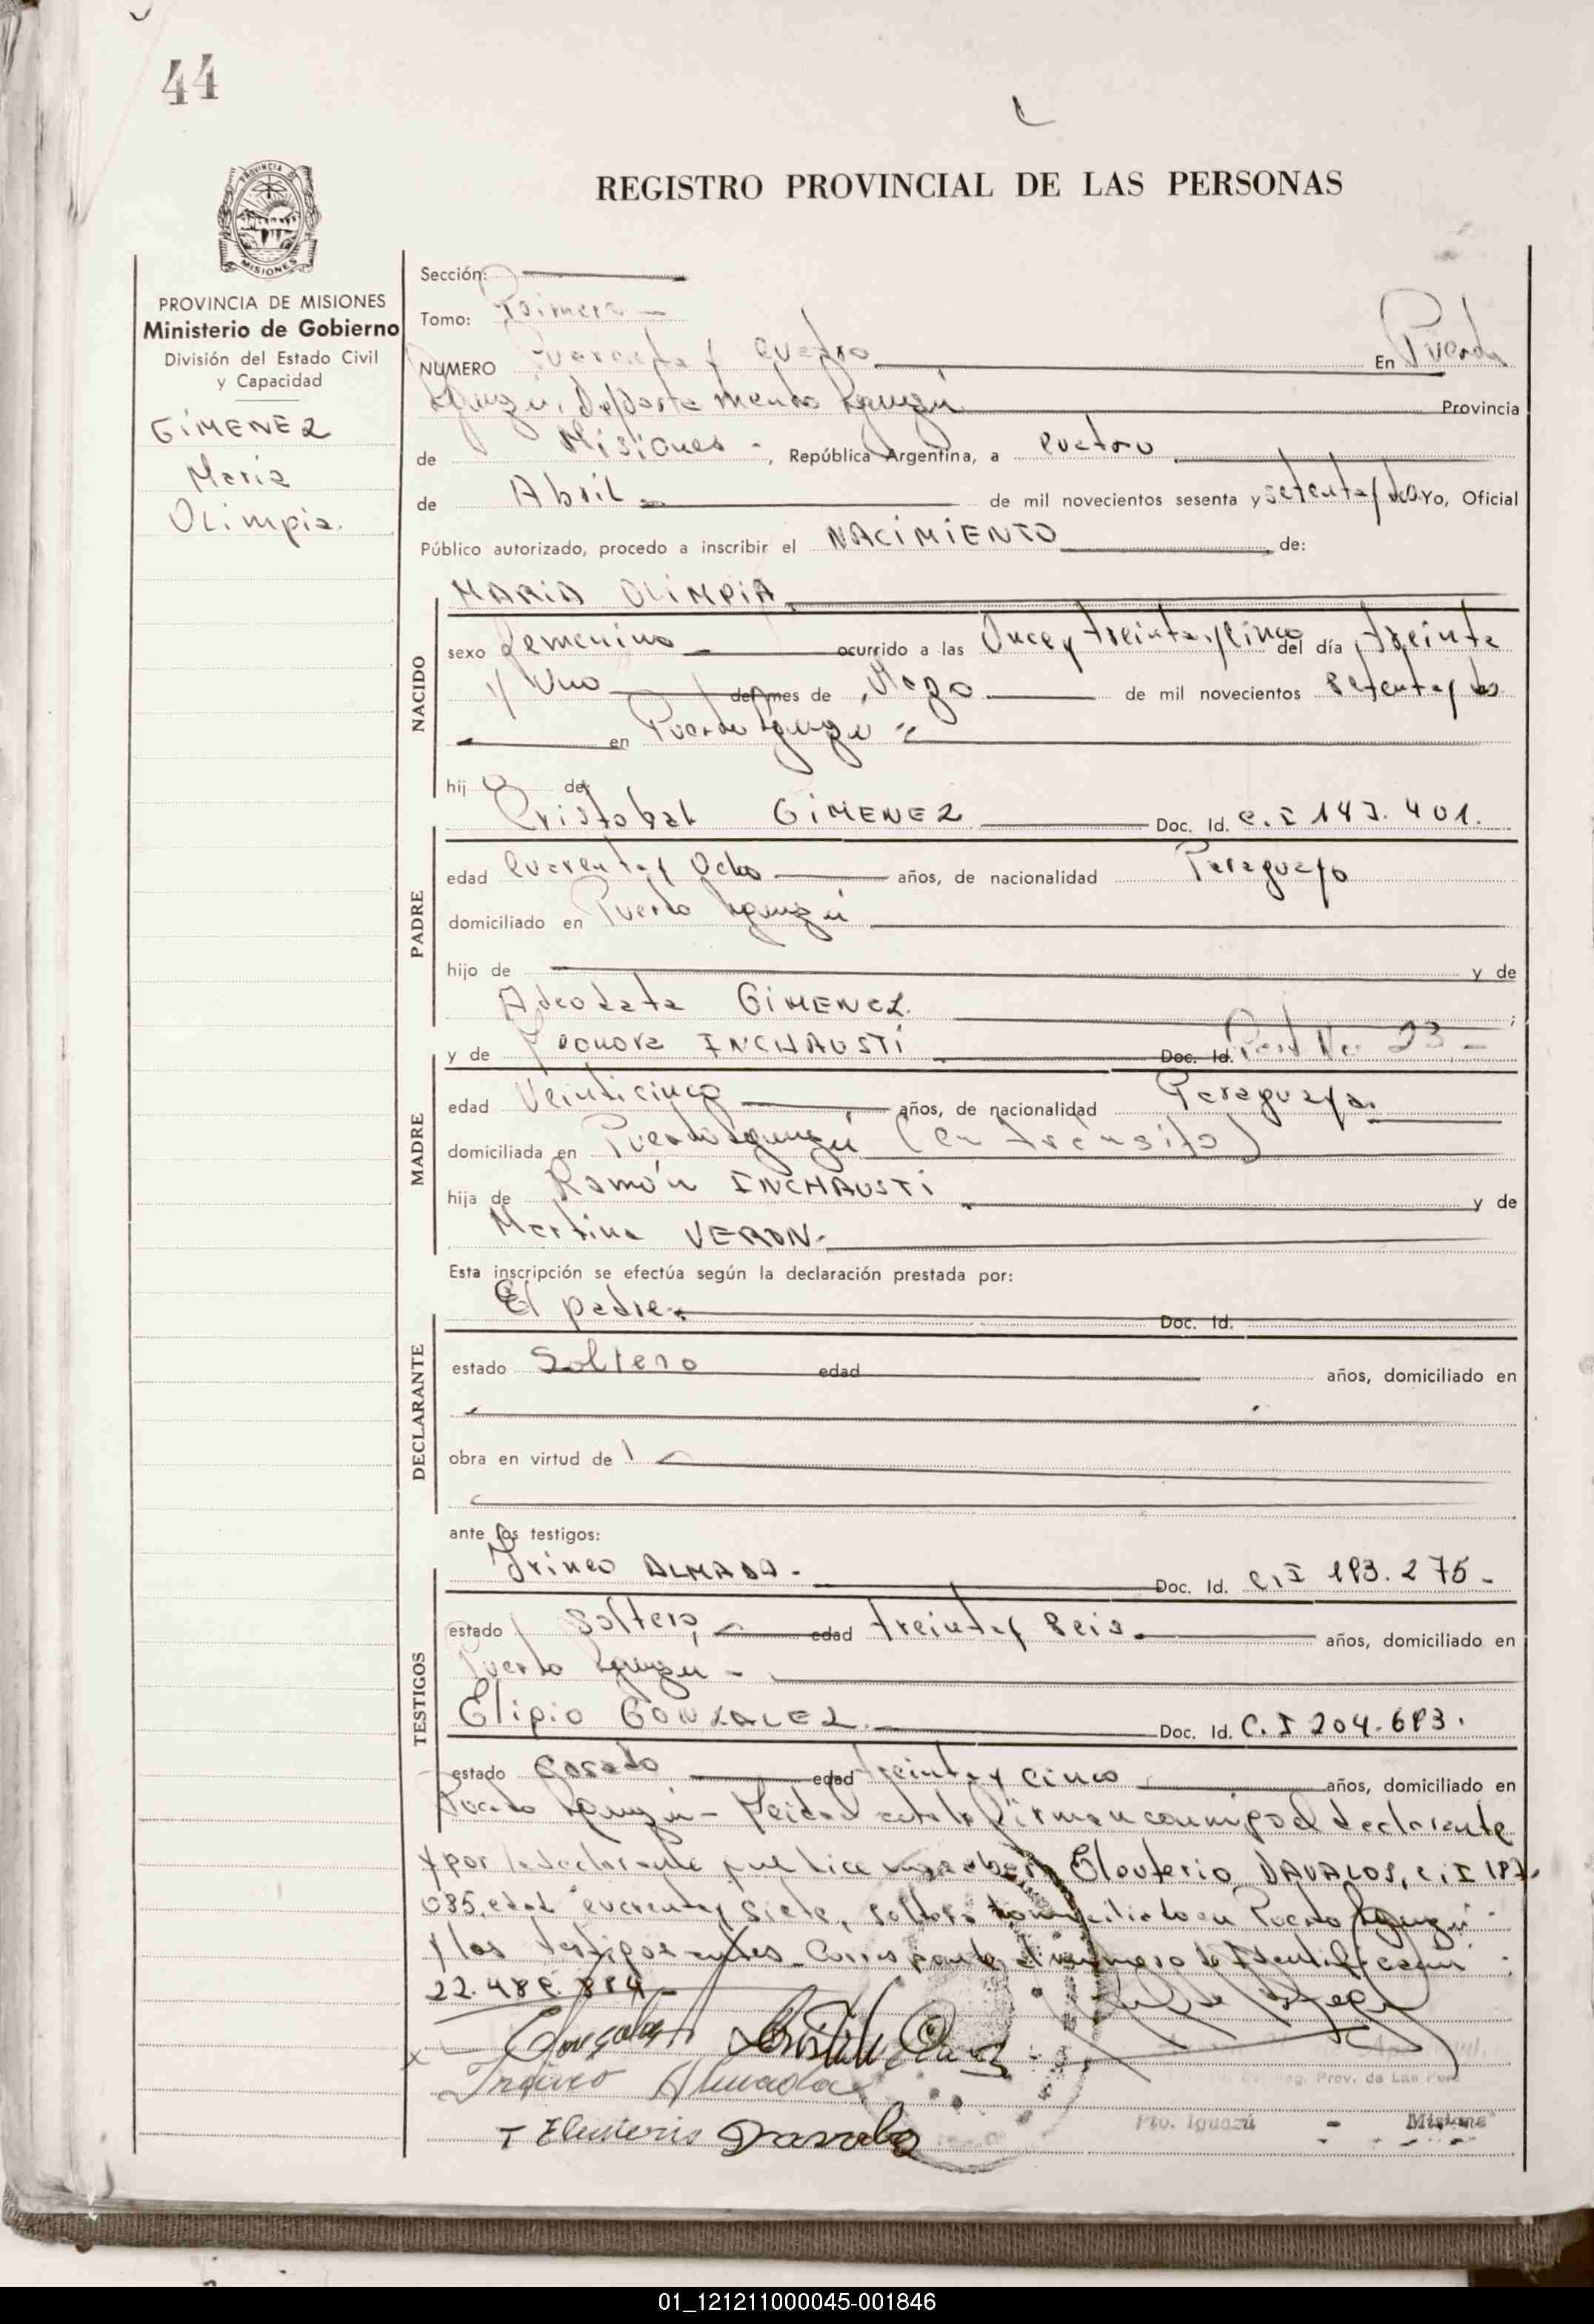 44
REGISTRO PROVINCIAL DE LAS PERSONAS
PROVINCIA DE MISIONES
MISIONES
PROVINCIA DE MISIONES
Ministerio de Gobierno
División del Estado Civil
y Capacidad
GIMENEZ
Maria
Olimpia.
Sección:
Tomo: Primero
NUMERO Cuarenta y Cuatro En Puerto
Iguazú, Departamento Iguazú Provincia
de Misiones -, República Argentina, a cuatro
de Abril de mil novecientos sesenta y setenta y dos Yo, Oficial
Público autorizado, procedo a inscribir el NACIMIENTO de:
NACIDO
MARIA OLIMPIA
sexo femenino ocurrido a las Once y treinta y cinco del día treinta
y Uno del mes de de mil novecientos setenta y dos
en Puerto Iguazu
hij a de:
PADRE
Cristobal GIMENEZ Doc. Id. C.I 143.401.
edad cuarenta y Ocho años, de nacionalidad Paraguayo
domiciliado en Puerto Iguazú
hijo de y de
Adeodata GIMENEZ. ;
MADRE
y de INCHAUSTI Doc. Id. 23 -
edad Veinticinco años, de nacionalidad Paraguaya.
domiciliada en Puerto Iguazú (en transito)
hija de Ramón INCHAUSTI y de
Martina VERON.
Esta inscripción se efectúa según la declaración prestada por:
DECLARANTE
El padre. Doc. Id.
estado Soltero edad años, domiciliado en
obra en virtud de
ante los testigos:
TESTIGOS
Irineo ALMADA. Doc. Id. C.I 193.275-
estado Soltero, edad treinta y Seis. años, domiciliado en
Puerto Iguazu -
Elipio GONZALEZ. Doc. Id. C.I 204.693.
estado Casado edad treinta y cinco años, domiciliado en
Puerto Iguazú - Leida el acta la firman conmigo el declarente
y por la declarante que dice no saber Eleuterio DAVALOS, C.I 197.
035, edad cuarenta y siete, soltero domiciliado en Puerto Iguazú
y los testigos antes. Corresponde el numero de Identificación
22.489.894
Irineo Almada
Eleuterio Davalos
Pto. Iguazú - Misiones
01_121211000045-001846